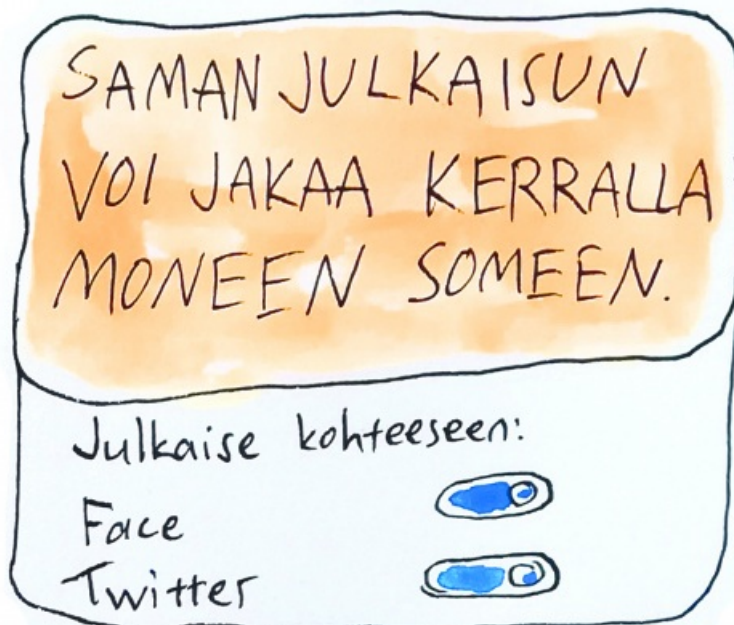 SAMAN JULKAISUN
VOI JAKAA KERRALLA
MONEEN SOMEEN.
Julkaise kohteeseen:
Face
Twitter